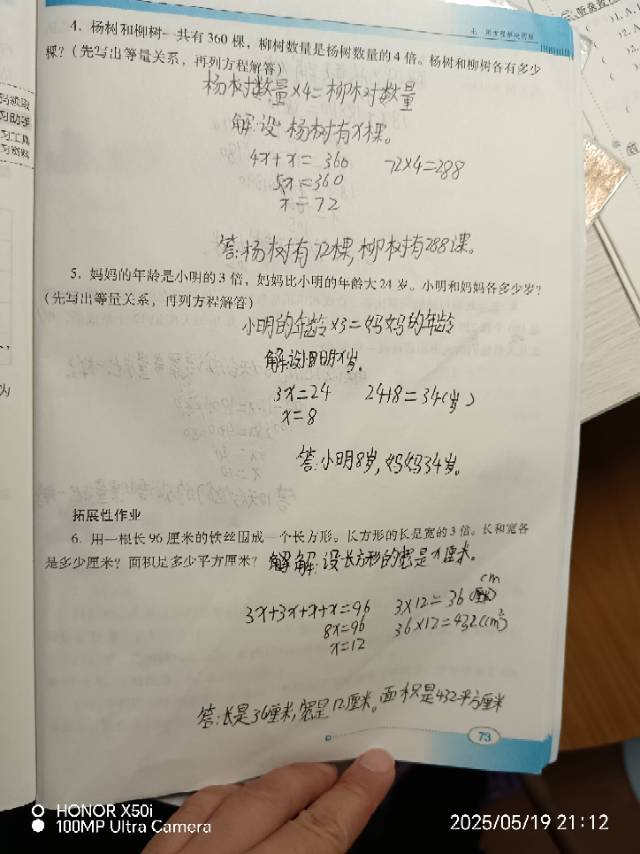 4. 用方程解决问题
4. 杨树和柳树一共有 360 棵，柳树数量是杨树数量的 4 倍。杨树和柳树各有多少
棵？(先写出等量关系，再列方程解答)
杨树数量×4=柳树数量
解:设杨树有x棵。
4x+x=360 72×4=288
5x=360
x=72
答:杨树有72棵,柳树有288课。
5. 妈妈的年龄是小明的 3 倍，妈妈比小明的年龄大 24 岁。小明和妈妈各多少岁？
(先写出等量关系，再列方程解答)
小明的年龄×3=妈妈的年龄
解设小明x岁。
3x=24 24+8=34(岁)
x=8
答:小明8岁,妈妈34岁。
拓展性作业
6. 用一根长 96 厘米的铁丝围成一个长方形。长方形的长是宽的 3 倍。长和宽各
是多少厘米？面积是多少平方厘米？ 解:设长方形的宽是x厘米。
3x+3x+x+x=96 3×12=36 cm
8x=96 36×12=432(cm²)
x=12
答:长是36厘米,宽是12厘米。面积是432平方厘米
73
HONOR X50i
100MP Ultra Camera
2025/05/19 21:12